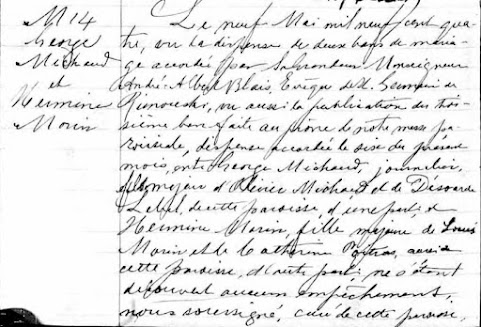 M 14
George
Michaud
et
Hermine
Morin
Le neuf Mai mil neuf cent qua-
tre, vu la dispense de deux bans de maria-
ge accordée par Sa Grandeur Monseigneur
André-Albert Blais, Evêque de St. Germain de
Rimouski, vu aussi la publication du troi-
sième ban faite au prône de notre messe pa-
roissiale, dispense accordée le six du présent
mois, entre George Michaud, journalier,
fils majeur d'Olivier Michaud et de Désearde
Lebel, de cette paroisse, d'une part, et
Hermine Morin, fille majeure de Louis
Morin et de Catherine Poitras, aussi de
cette paroisse, d'autre part; ne s'étant
découvert aucun empêchement,
nous soussigné, curé de cette paroisse,